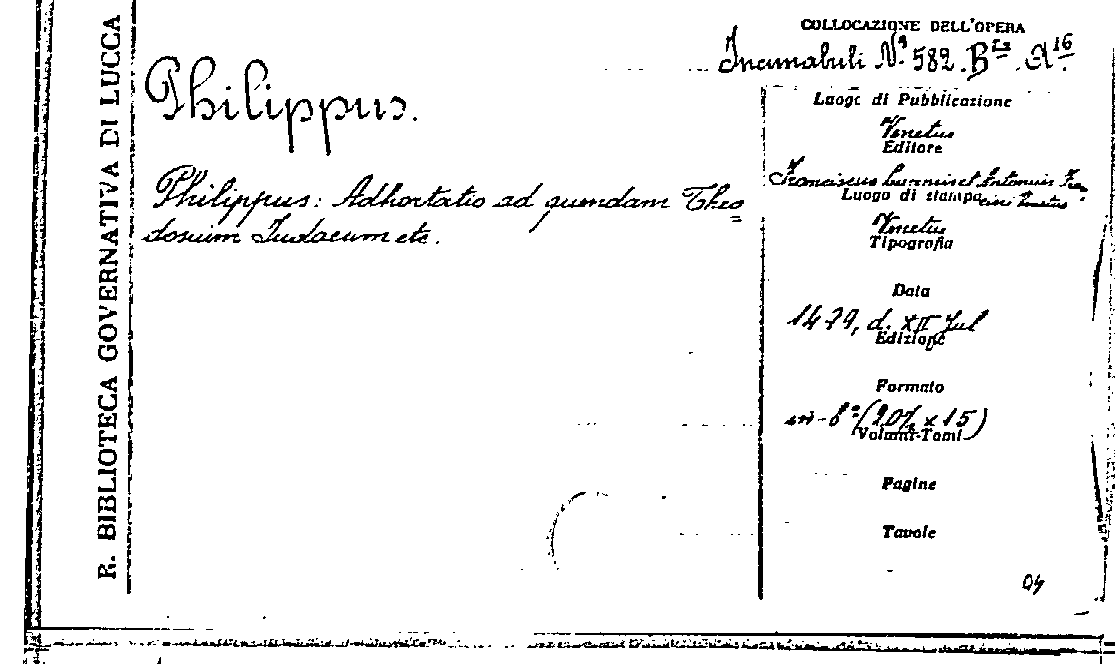 R. BIBLIOTECA GOVERNATIVA DI LUCCA
COLLOCAZIONE DELL'OPERA
Incunabuli N.º 582. A 16
Philippus.
Philippus: Adhortatio ad quendam Theo=
dosium Iudaeum etc.
Luogo di Pubblicazione
Venetus
Editore
Franciscus et Antonius
Luogo di stampa
Venetus
Tipografia
Data
1479, d. XII Jul
Edizione
Formato
in-8º (20½ x 15)
Volumi-Tomi
Pagine
Tavole
04